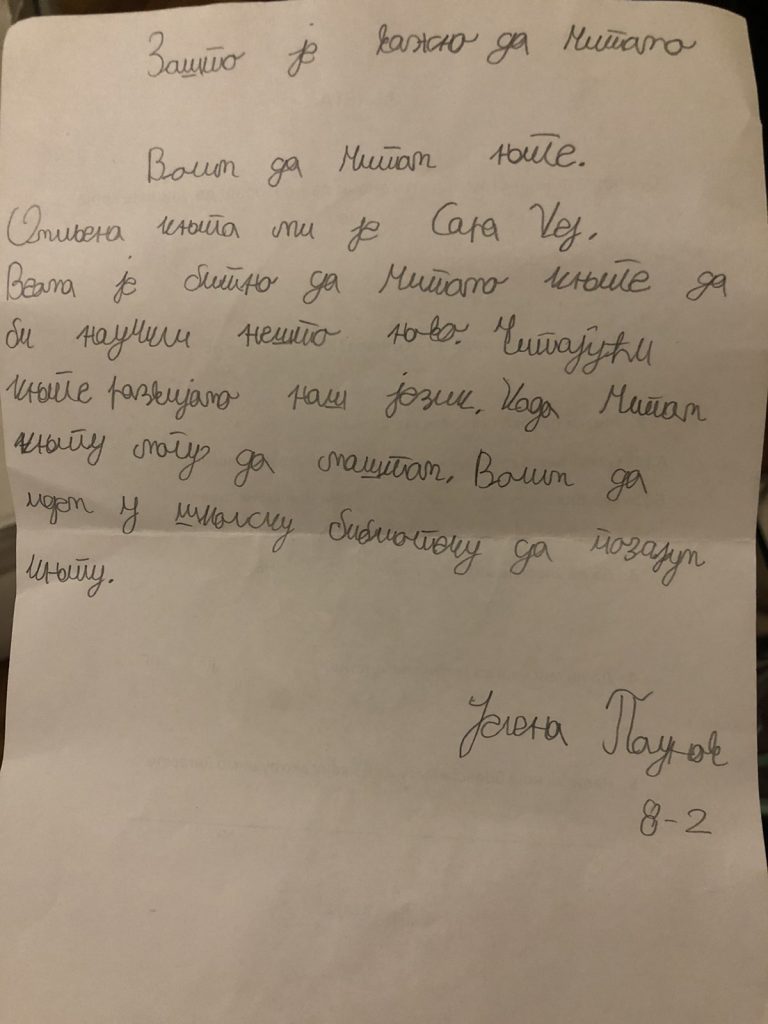 Зашто је важно да читамо
Волим да читам књиге.
Омиљена књига ми је Сара Кеј.
Веома је битно да читамо књиге да
би научили нешто ново. Читајући
књиге развијамо наш језик. Када читам
књигу могу да маштам. Волим да
идем у школску библиотеку да позајмим
књигу.
Јелена
8-2